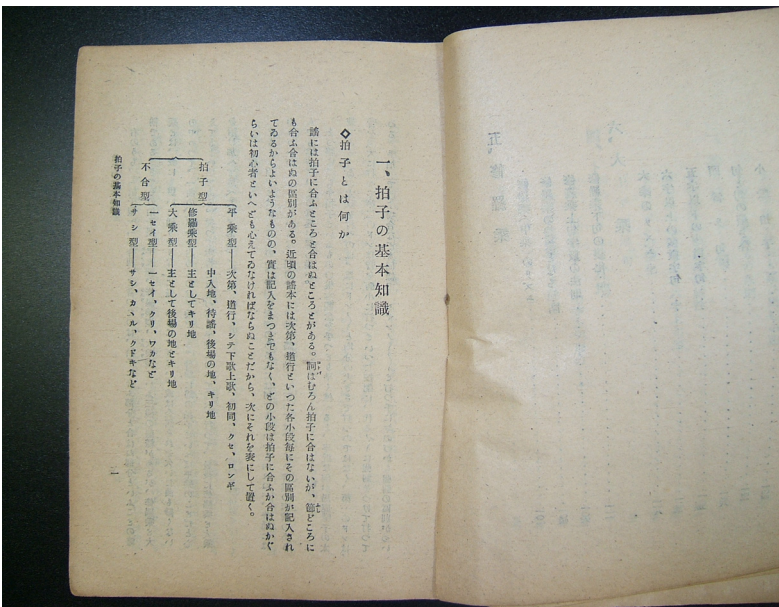 一、拍子の基本知識
◇拍子とは何か
謠には拍子に合ふところと合はぬところとがある。詞はむろん拍子に合はないが、節どころに
も合ふ合はぬの區別がある。近頃の謠本には次第、道行といつた各小段毎にその區別が記入され
てゐるからよいようなものの、實は記入をまつまでもなく、どの小段は拍子に合ふか合はぬかぐ
らいは初心者といへども心えてゐなければならぬことだから、次にそれを表にして置く。
拍子型
平乘型――次第、道行、シテ下歌上歌、初同、クセ、ロンギ
中入地、待謠、後場の地、キリ地
修羅乘型――主としてキリ地
大乘型――主として後場の地とキリ地
不合型
一セイ型――一セイ、クリ、ワカなど
サシ型――サシ、カヽル、クドキなど
拍子の基本知識
一
五 修羅乘